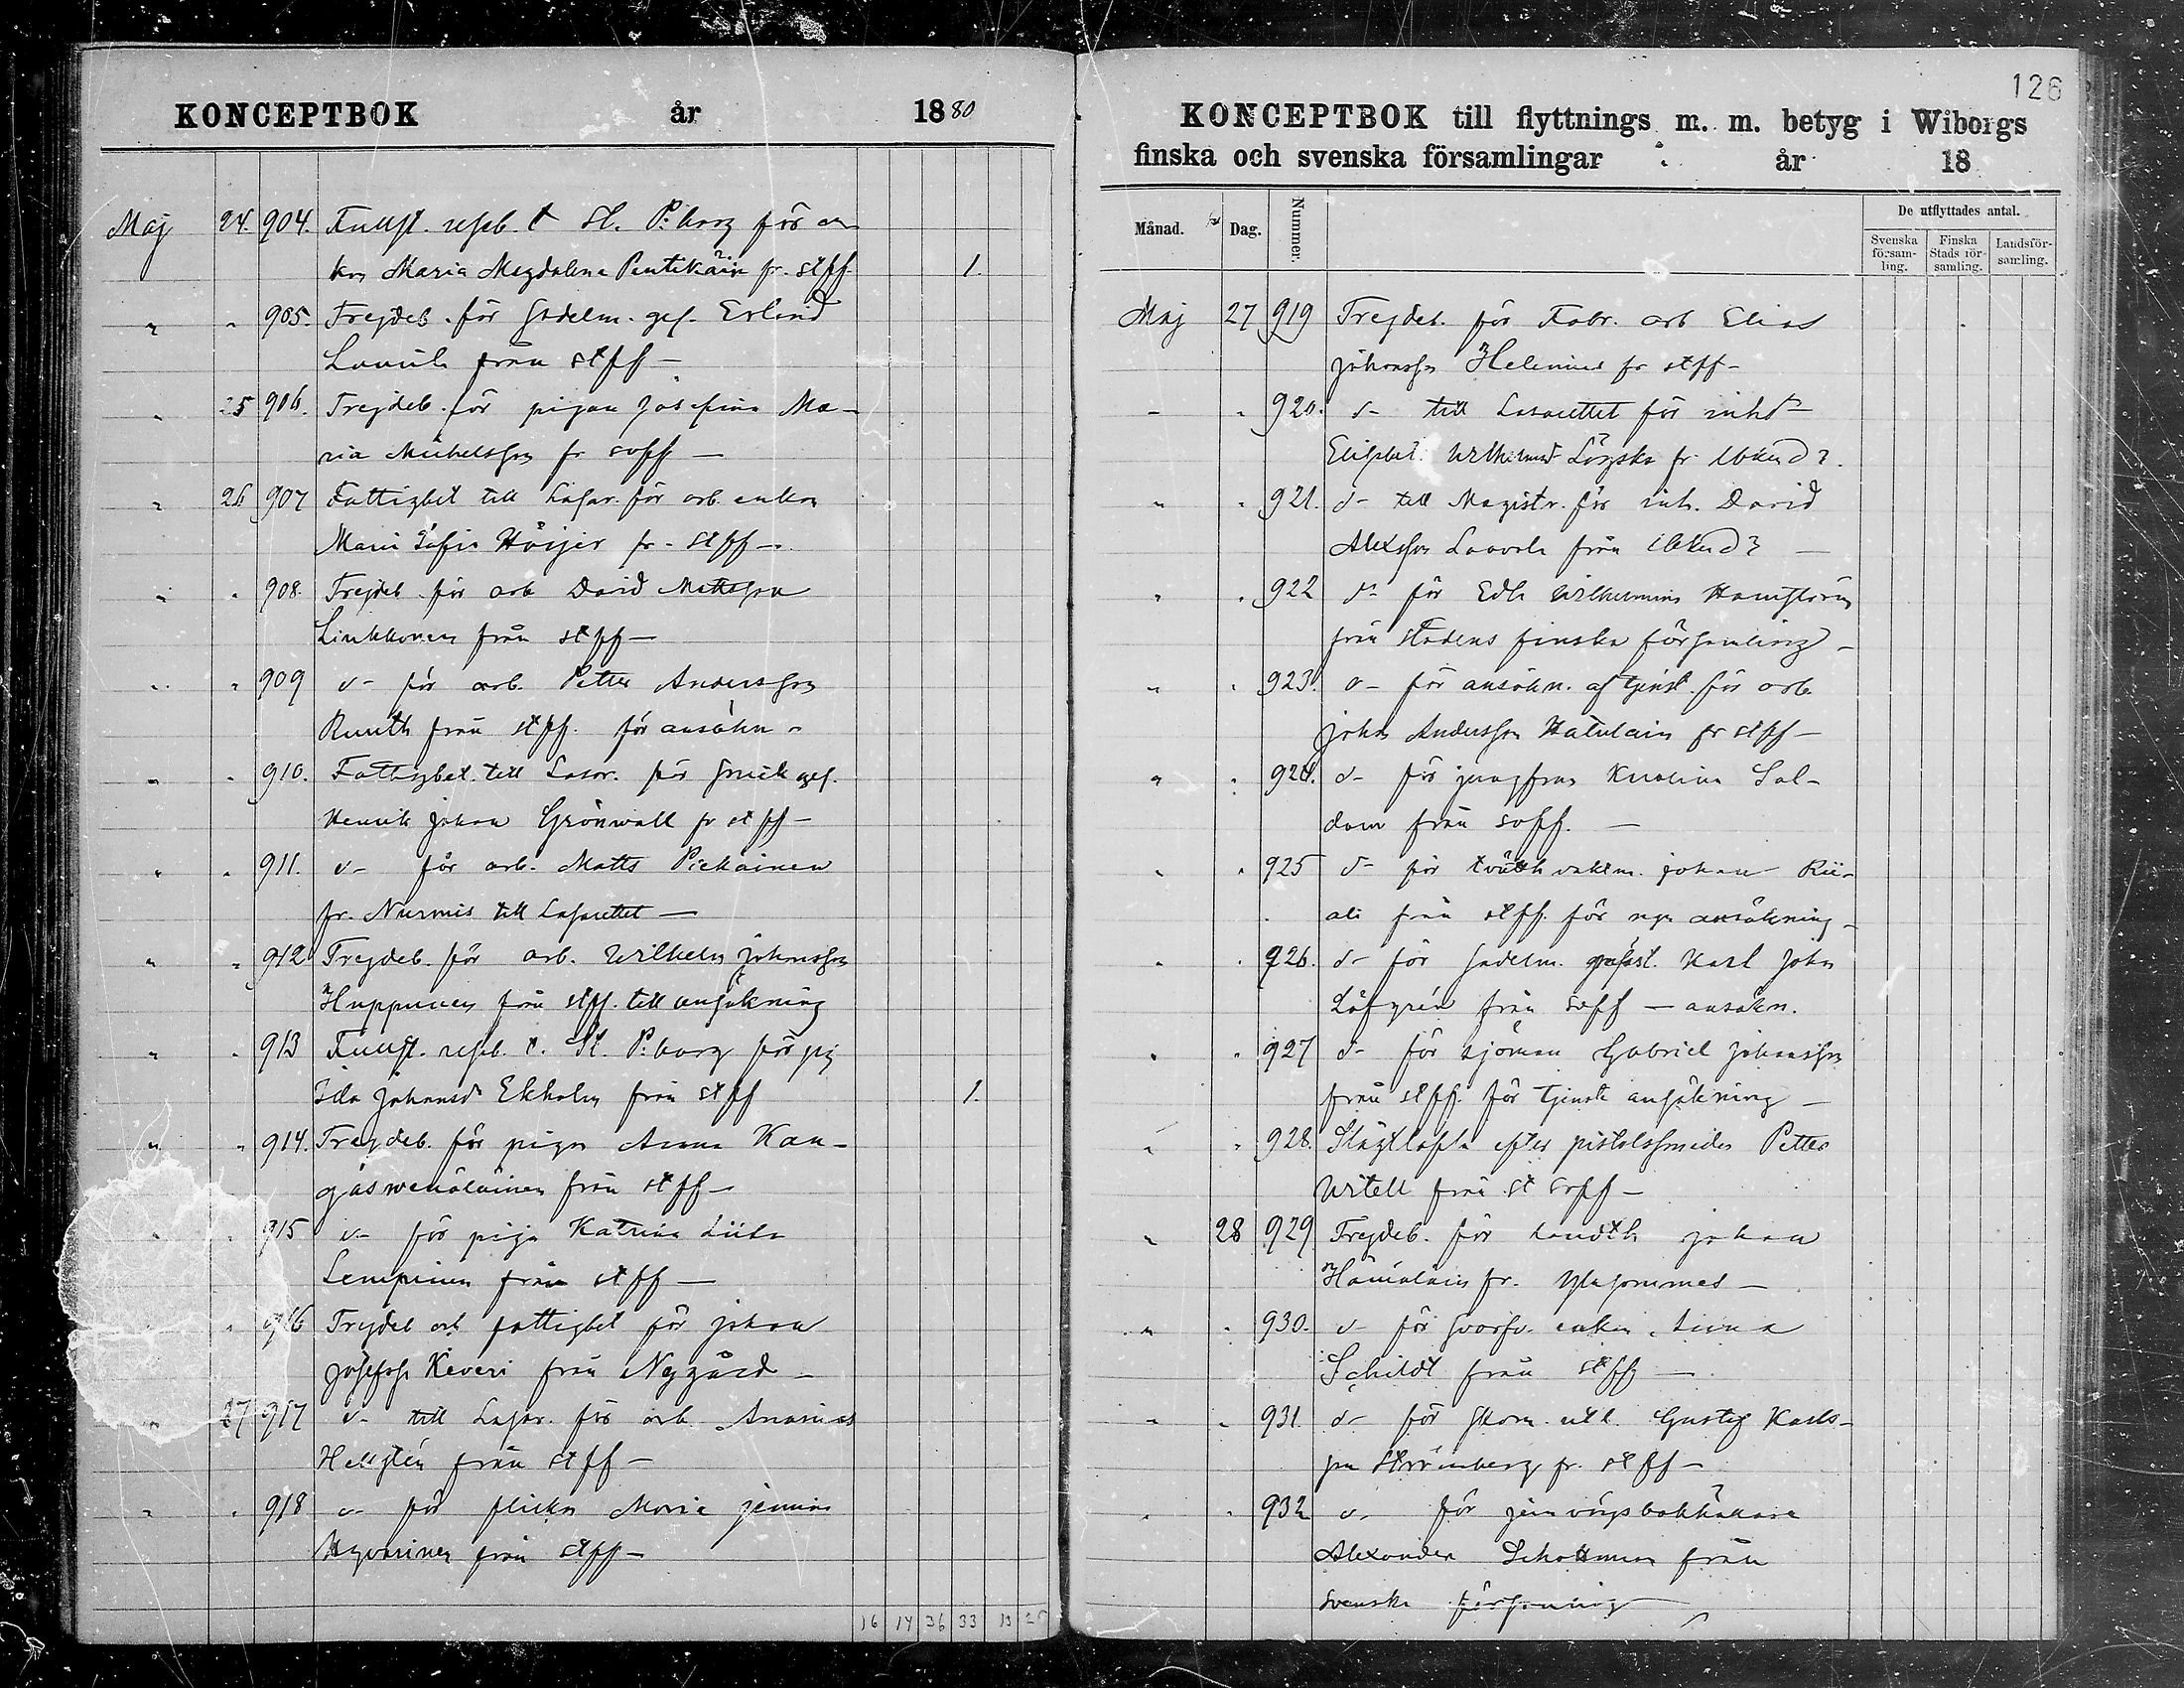 KONCEPTBOK år 1880
Maj 24. 904. Fullst. reseb. t St. P:borg för en
kan Maria Magdalena Pentikäin fr. stff. 1.
" " 905. Frejdeb. för sadelm. ges. Erland
från stff —
" 25 906. Frejdeb. för pigan Josefina Ma-
ria Michelsson fr soff —
" 26 907 Fattigbet till Lasar. för arb. enkan
Maria Sofia Höijer fr. stff —
" " 908. Frejdeb för arb David Mattsson
Linkkonen från stff —
" " 909 d- för arb. Petter Andersson
Ruuth från stff. för ansökn -
" " 910. Fattigbet. till Lasar. för smick ges.
Henrik Johan Grönwall fr stff —
" " 911. d- för arb. Matts Piekäinen
fr. Nurmis till Lasarettet —
" " 912 Frejdeb. för arb. Wilhelm Johansson
Huppunen från stff. till ansökning
" " 913 Fullst. reseb. t. St. P:borg för pig
Ida Johansd Ekholm från stff 1.
" " 914. Frejdeb. för pigan Anna Kan-
gaswenäläinen från stff —
" 915 d- för piga Katrina Liisa
Lempinen från stff —
" 916 Frejdeb och fattigbet för Johan
Josefss. Keveri från Nygård —
" 27 917 d- till Lasar. för arb. Ananias
Hellstén från stff —
" " 918 d- för flickan Maria Jemina
Hyvärinen från stff —
16 14 36 33 13 25
126
KONCEPTBOK till flyttnings m. m. betyg i Wiborgs
finska och svenska församlingar år 18
Månad. Dag. Nummer. De utflyttades antal.
Svenska församling. Finska Stads församling. Landsförsamling.
Maj 27 919 Frejdeb. för Fabr. arb Elias
Johansson Helenius fr stff —
" " 920. d- till Lasarettet för inhs
Elisabet Wilhelmsd fr
" " 921. d- till Magistr. för inh. David
Alexsson från
" " 922 d- för Edla Wilhelmina
från stadens finska församling —
" " 923. d- för ansökn. af tjenst. för arb.
Johan Andersson Hatulain fr stff —
" " 924. d- för jungfrun Karolina Sal-
dom från soff. —
" " 925 d- för vaktm. Johan Rii-
ali från stff. för nya ansökning —
" " 926. d- för sadelm. Karl Johan
Löfgrén från soff — ansökn.
" " 927 d- för sjöman Gabriel Johansson
från stff. för tjenste ansökning —
" " 928. Slägttafla efter pistolssmeden Petter
Witell från st soff —
" 28 929 Frejdeb. för Johan
Hämäläin fr. Ylasommee —
" " 930. d- för svarfv. enkan Anna
Schildt från stff —
" " 931. d- för skom. utl. Gustaf Karls-
son Strömberg fr. stff —
" " 932 d- för jernvägsbokhållare
Alexander Schottman från
svenska